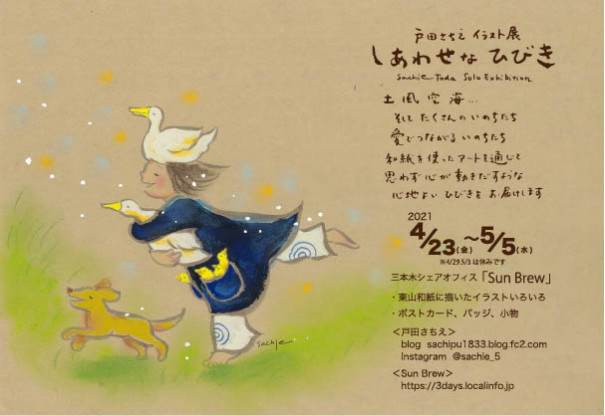 戸田さちえ イラスト展
しあわせな ひびき
Sachie Toda Solo Exhibition
土 風 空 海...
そして たくさんの いのちたち
愛でつながる いのちたち
和紙を使ったアートを通じて
思わず心が動きだすような
心地よい ひびきを お届けします
2021
4/23(金) 〜5/5(水)
※4/29.5/3 は休みです
三本木シェアオフィス「Sun Brew」
・東山和紙に描いたイラストいろいろ
・ポストカード、バッジ、小物
＜戸田さちえ＞
blog sachipu1833.blog.fc2.com
Instagram @sachie_5
＜Sun Brew＞
https://3days.localinfo.jp
sachie